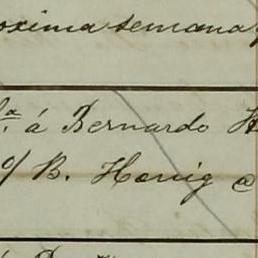 oxima semana
á Bernardo H
o/ B. Hœnig @